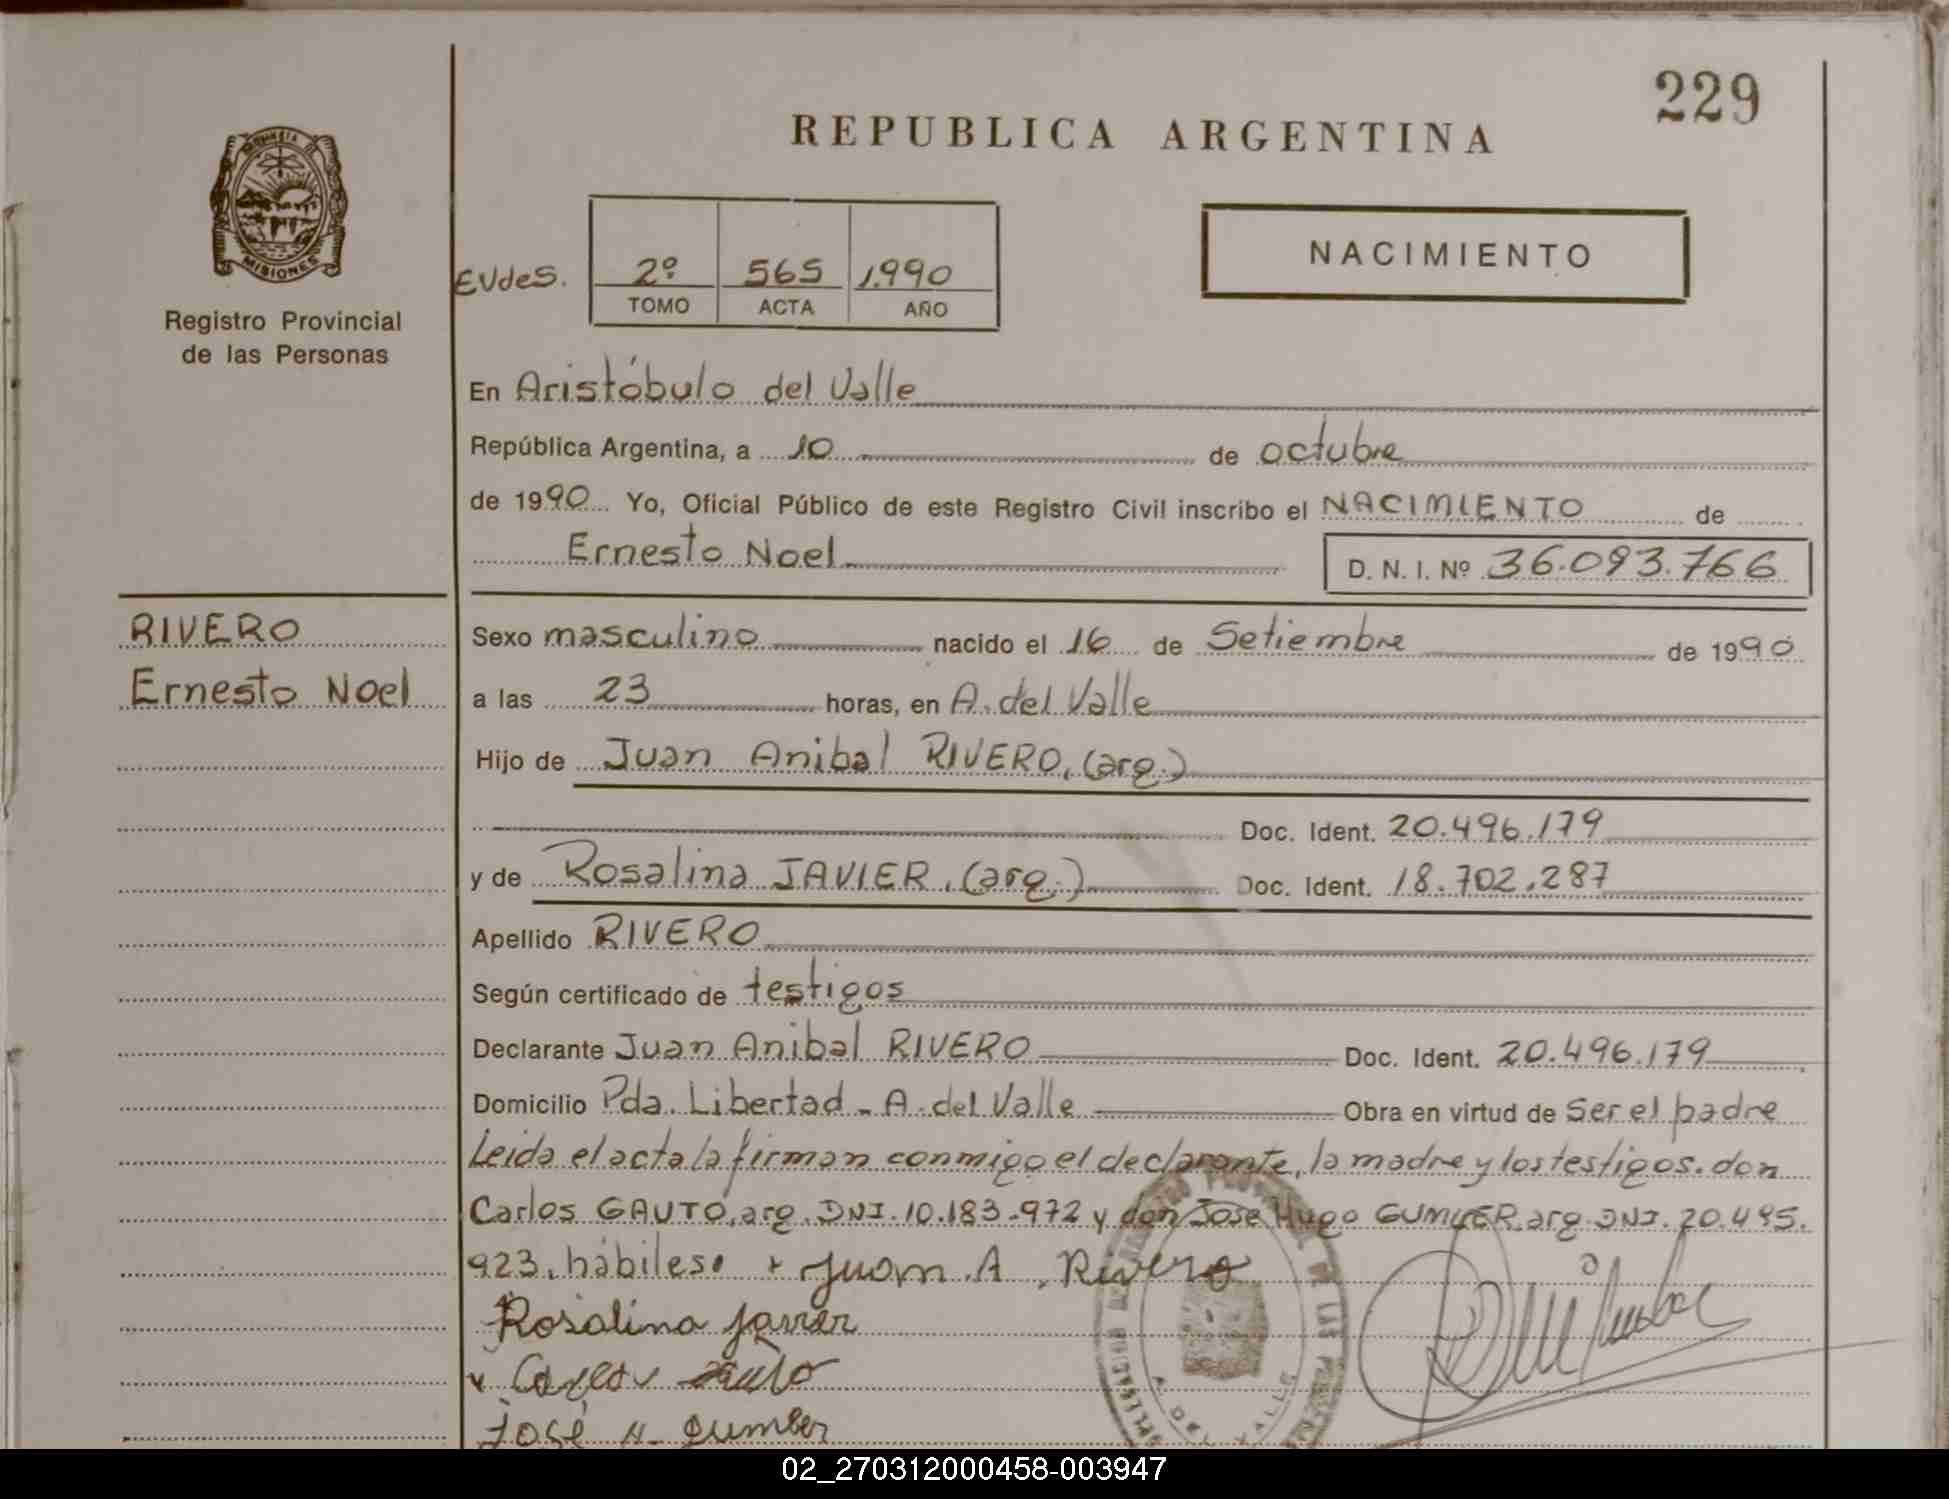 229
REPUBLICA ARGENTINA
MISIONES
Registro Provincial
de las Personas
EVdeS.
2º 565 1.990
TOMO ACTA AÑO
NACIMIENTO
En Aristóbulo del Valle
República Argentina, a 10 de octubre
de 1990 Yo, Oficial Público de este Registro Civil inscribo el NACIMIENTO de
Ernesto Noel D. N. I. Nº 36.093.766
RIVERO
Ernesto Noel
Sexo masculino nacido el 16 de Setiembre de 1990
a las 23 horas, en A. del Valle
Hijo de Juan Anibal RIVERO, (arg.)
Doc. Ident. 20.496.179
y de Rosalina JAVIER, (arg.) Doc. Ident. 18.702.287
Apellido RIVERO
Según certificado de testigos
Declarante Juan Anibal RIVERO Doc. Ident. 20.496.179
Domicilio Pda. Libertad - A. del Valle Obra en virtud de Ser el padre
Leida el acta la firman conmigo el declarante, la madre y los testigos. don
Carlos GAUTO, arg. DNI. 10.183.972 y don Jose Hugo arg. DNI. 20.495.
923, hábiles. Juan A. Rivero
Rosalina Javier
Carlos Gauto
José H. Gumber
A. DEL VALLE
02_270312000458-003947